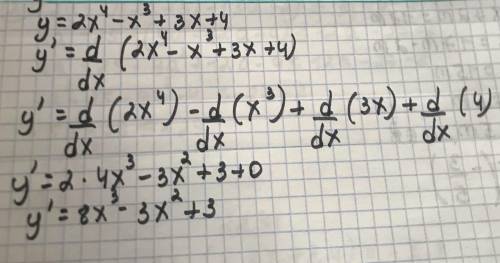 y=2x⁴-x³+3x+4
y'=d/dx (2x⁴-x³+3x+4)
y'=d/dx (2x⁴)-d/dx (x³)+d/dx (3x)+d/dx (4)
y'=2·4x³-3x²+3+0
y'=8x³-3x²+3